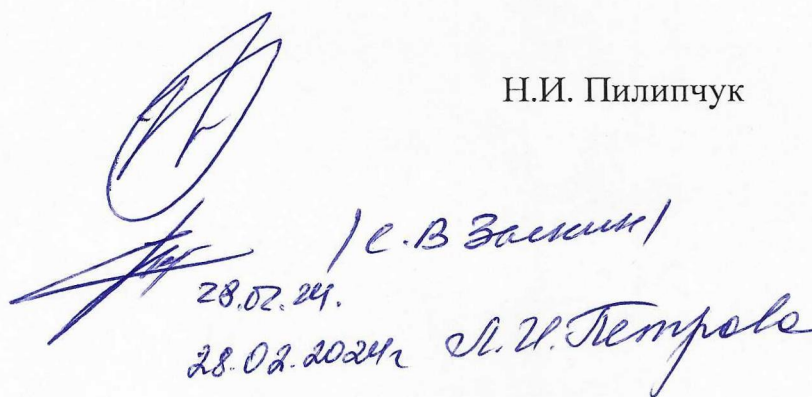 Н.И. Пилипчук
/С.В Заикин/
28.02.24.
28.02.2024г Л.И. Петрова